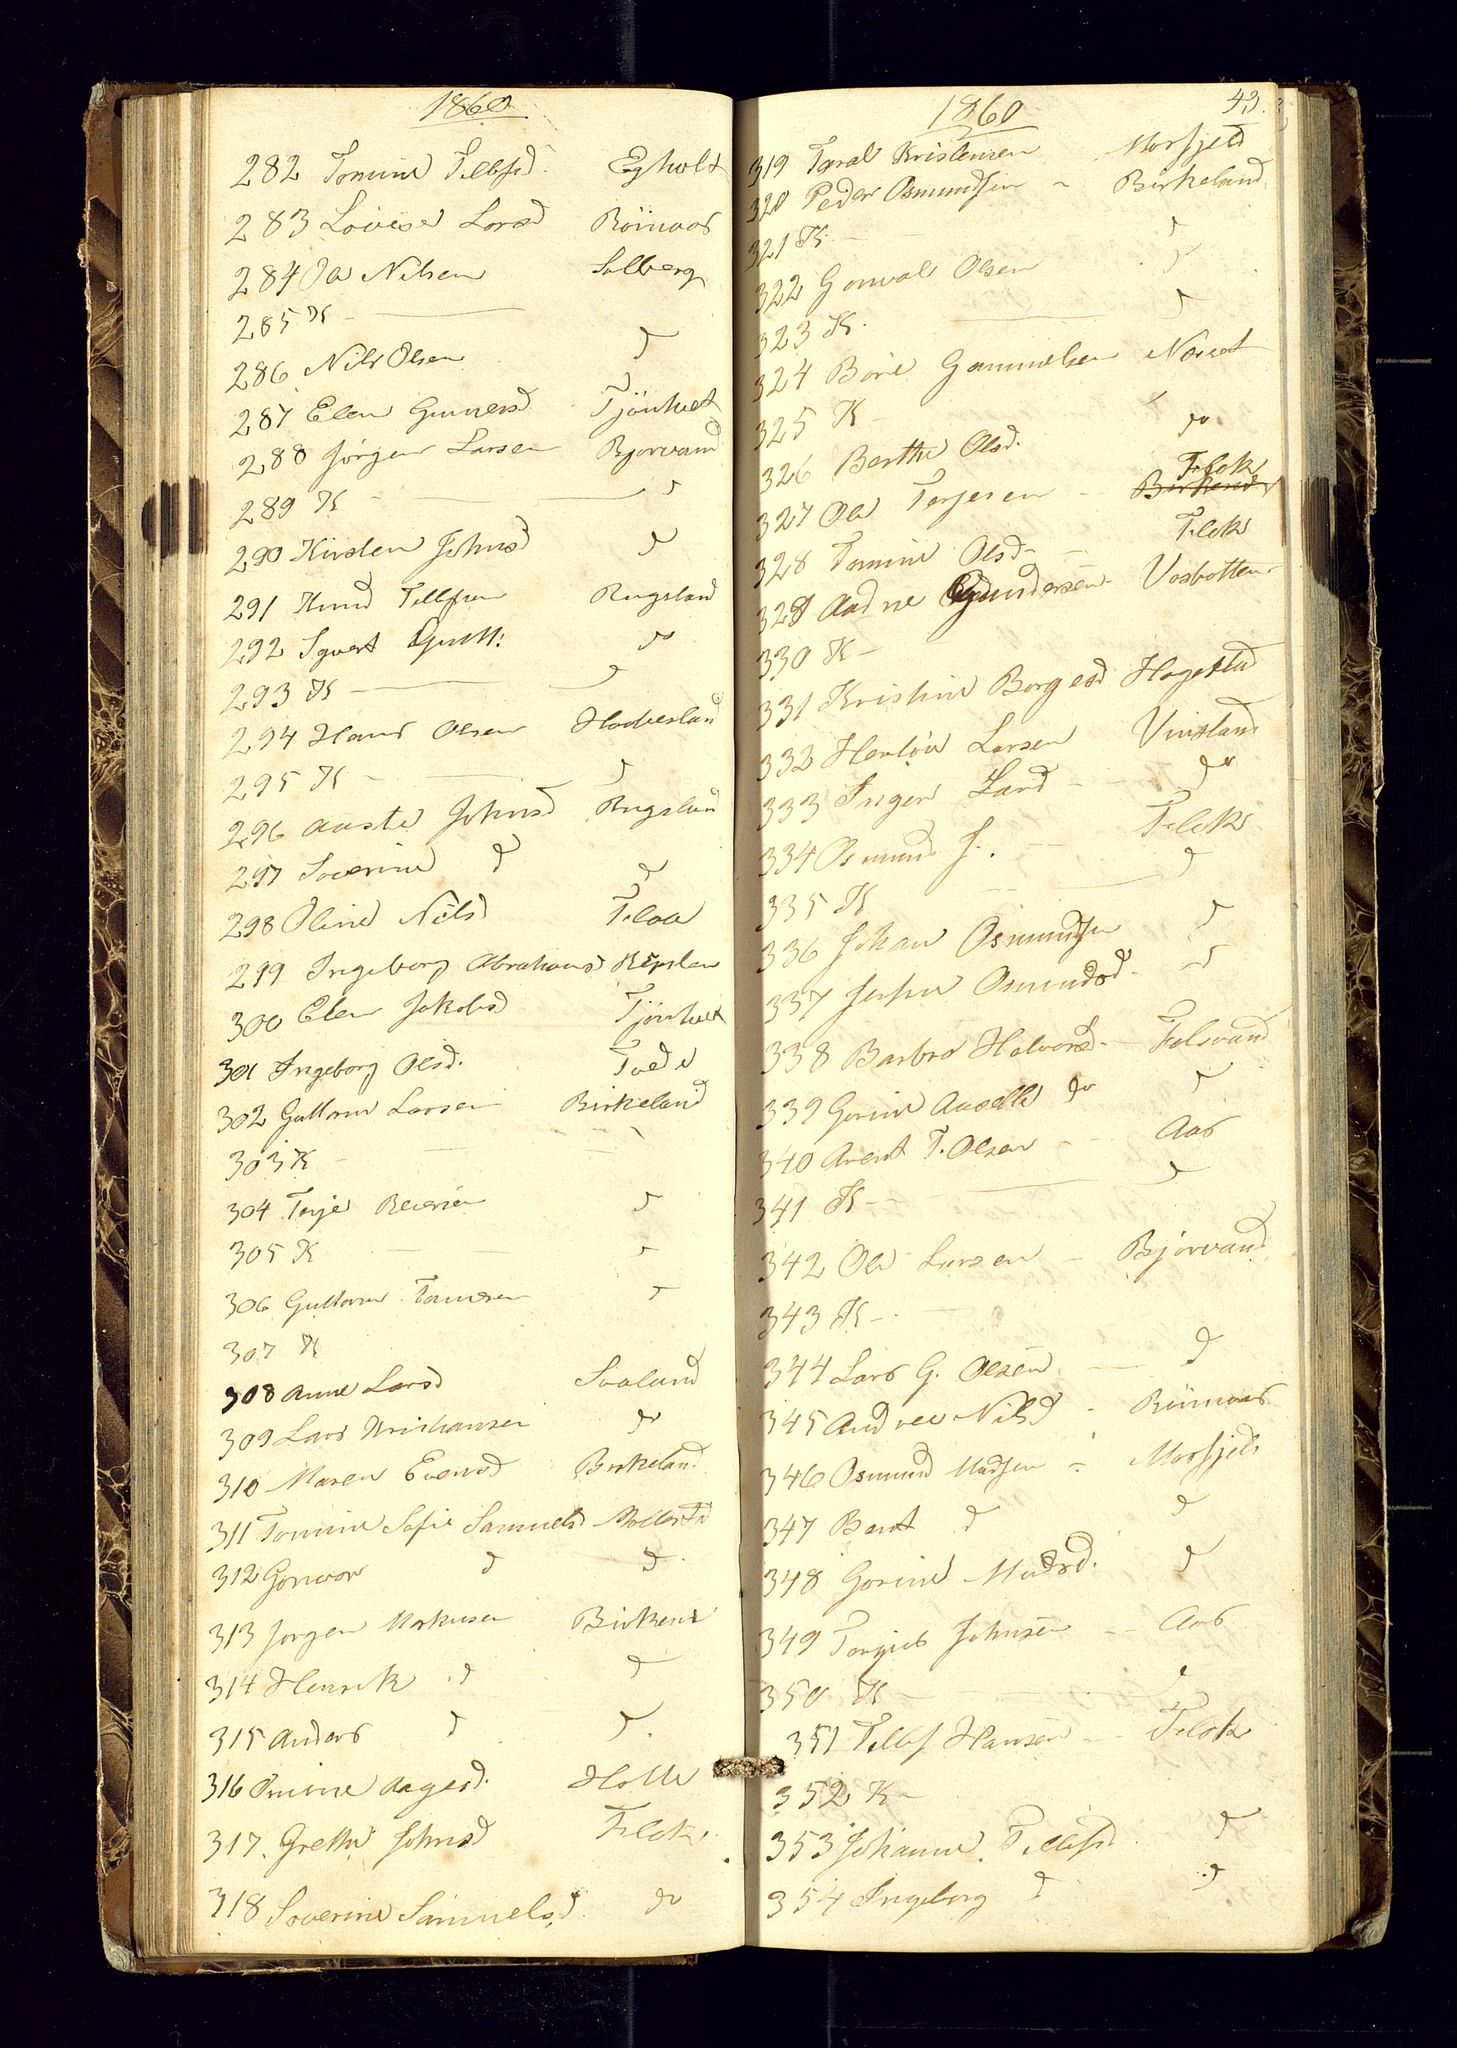 1860
282 Tomine Tellefsd. Egholt
283 Lovise Larsd Röinaas
284 Ole Nilsen Solberg
285 K -
286 Nils Olsen d
287 Elen Gunersd Tjönhet
288 Jörgen Larsen Bjorvand
289 K - d
290 Kirsten Johnsd d
291 Knud Tellefsen Rugsland
292 Syvert Gutt: do
293 K d
294 Hans Olsen Haaverland
295 K - d
296 Aaste Johnsd Rugsland
297 Soverine d d
298 Oline Nilsd Felaa
299 Ingeborg Abrahamsd Repslan
300 Elen Jakobsd Tjönhet
301 Ingeborg Olsd. Tvede
302 Guttorm Larsen Birkeland
303 K -
304 Terje Reiersen d
305 K d
306 Guttorm Tomesen d
307 K
308 Anne Larsd Svaland
309 Lars Kristiansen do
310 Maren Evensd Birkeland
311 Tomine Sofie Samuelsd Mollestad
312 Gonvor d d
313 Jorgen Markusen Birkene
314 Henrik d d
315 Anders d d.
316 Omine Aagesd. Holte
317. Grethe Johnsd Flak
318 Soverine Samuelsd. do
1860 43.
319 Taral Kristensen Morfjeld
320 Peder Osmundsen - Birkeland
321 K - d
322 Gonval Olsen d
323 K. d
324 Börie Gammelsen Næset
325 K -
326 Berthe Olsd. do
327 Ole Terjesen - Flak
328 Tomine Olsd - Flak
329 Aadne Gundersen - Vasbotten
330 K -
331 Kristine Borgesd Hagestad
332 Herlöv Larsen Vinsland
333 Inger Larsd - do
334 Osmund J. Flak
335 K d
336 Johan Osmundsen d
337 Osmundsd. d
338 Barbro Halvorsd. - Falsvand
339 Gorine Aasille do d
340 Arent T. Olsen - Aas
341 K - d
342 Ole Larsen - Bjorvand
343 K -
344 Lars G. Olsen d
345 Andrea Nilsd - Röinaas
346 Osmund Madsen - Morfjeld
347 Berot d d
348 Gorine Madsd. d
349 Torjus Johnsen - Aas
350 K - d
351 Tellef Hansen - Flak
352 K -
353 Johanne Tellefsd d
354 Ingeborg d d